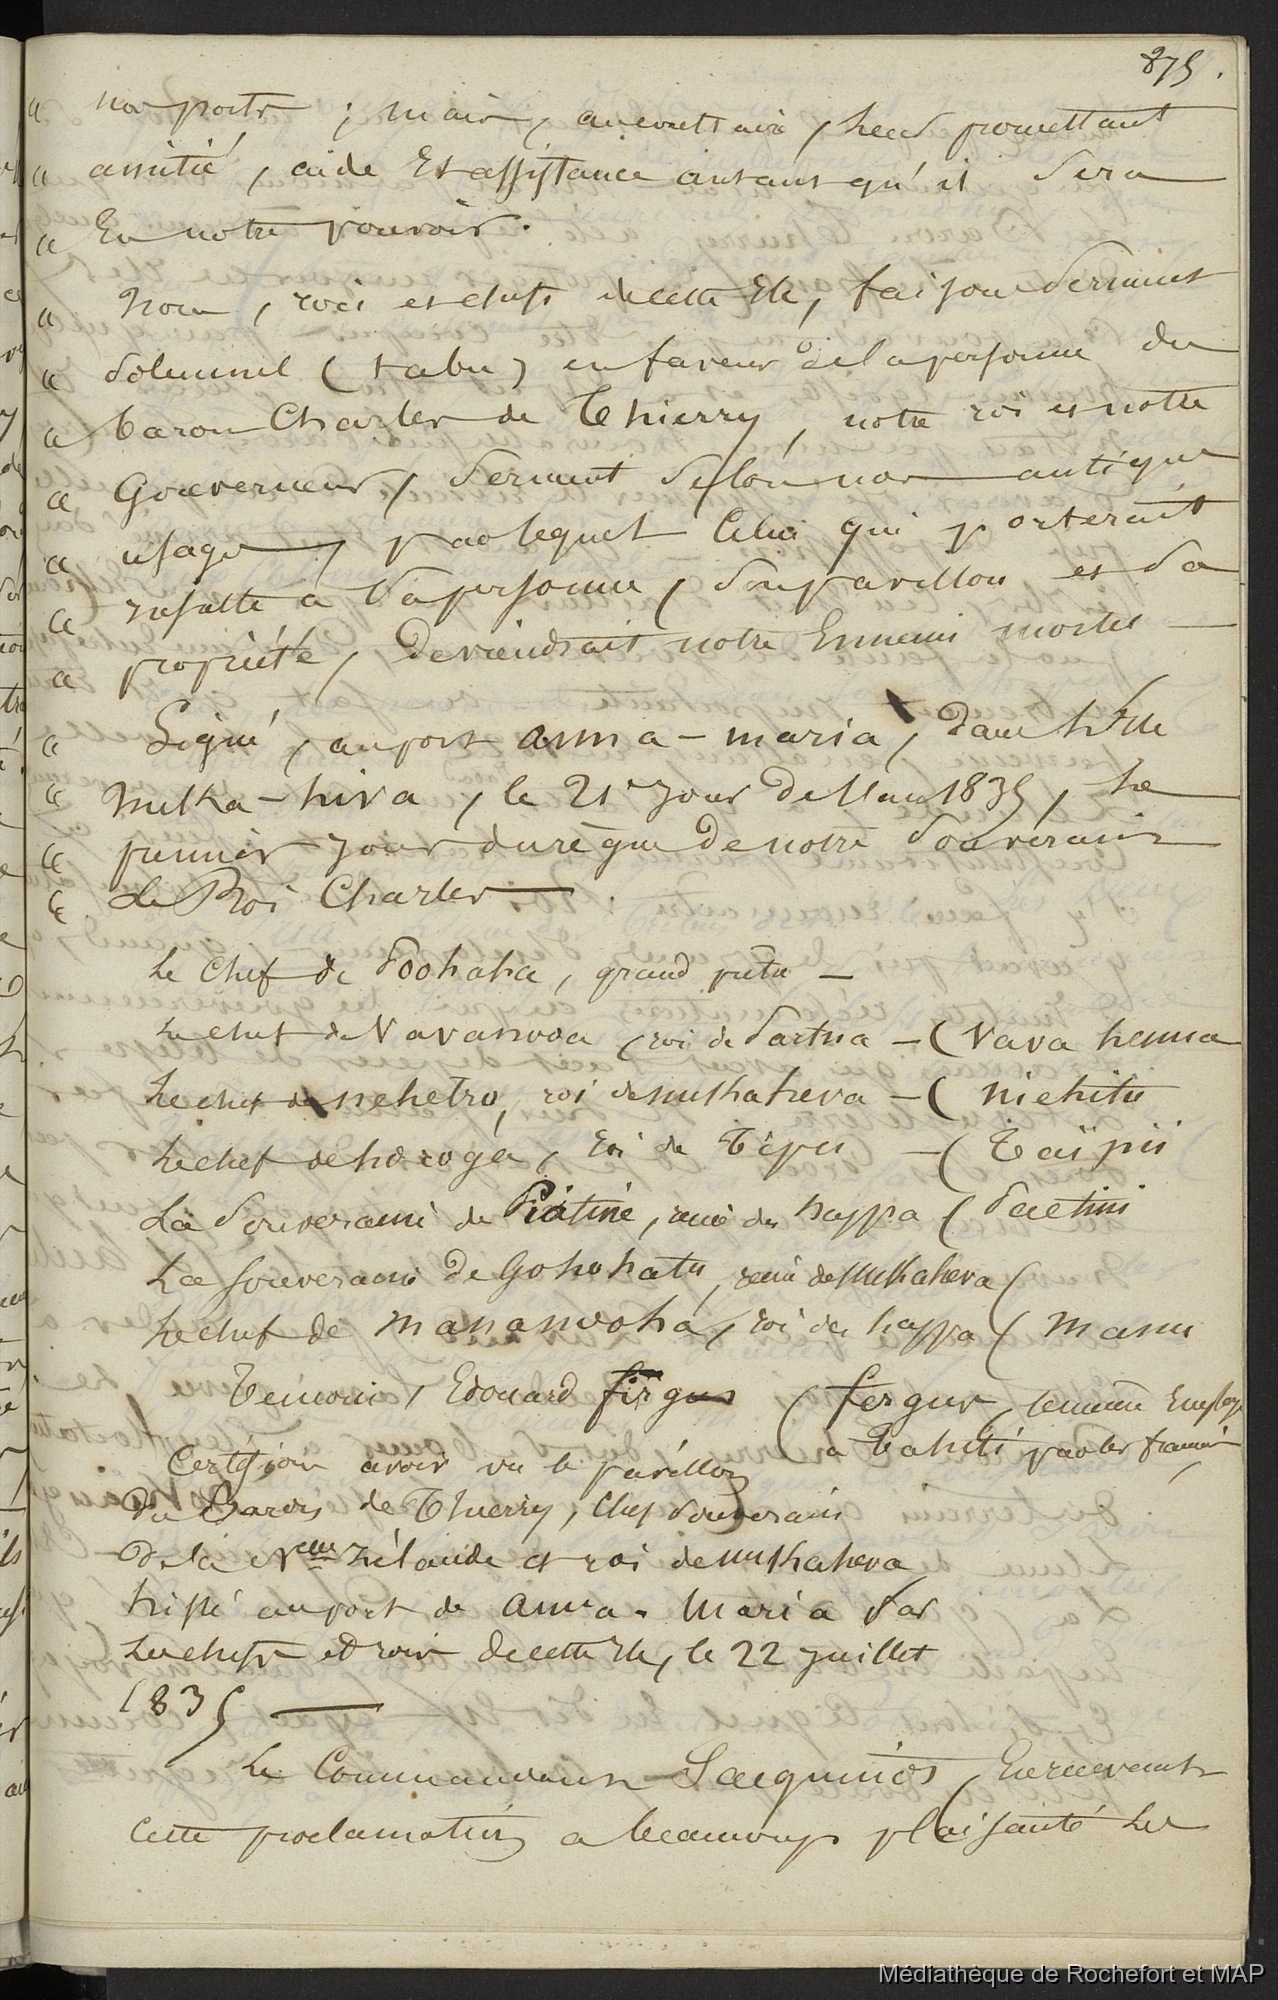 875.
« nos ports ; mais, au contraire, leur promettant
« amitié, aide et assistance autant qu'il sera
« En notre pouvoir.
« Nous, rois et chefs de cette Ile, faisons Serment
« Solennel (tabu) en faveur de la personne du
« baron Charles de Thierry, notre roi et notre
« Gouverneur, Serment selon nos antiques
« usages, par lequel Celui qui porterait
« insulte à Sa personne, Son pavillon et Sa
« propriété, deviendrait notre Ennemi mortel —
« Signé, au port anna-maria, dans l'Ile
« nuka-hiva, le 21e jour de 1835, le
« premier jour du règne de notre Souverain
« Le Roi Charles — .
Le Chef de Toohaha, grand prêtre —
Le chef de Vavanvoa, roi de — ( Vava henua
Le chef de nehetro, roi de nukaheva — ( niehitu
Le chef de hoeoga, roi de Tépii — ( Taïpii
La Souveraine de Piatiné, reine des happa (
La Souveraine de Gohohatu, reine de nukaheva (
Le chef de mananvoha, roi des happa ( manu
Témoins, Edouard firgus ( fergus, Employé
à Tahiti par les français
Certifions avoir vu le pavillon
du Baron de Thierry, Chef Souverain
de la Nelle Zélande et roi de nukaheva
hissé au port de anna-maria par
Les chefs et rois de cette Ile, le 22 juillet
1835 —
Le Commandant Jacquinot, En recevant
Cette proclamation a beaucoup plaisanté les
Médiathèque de Rochefort et MAP